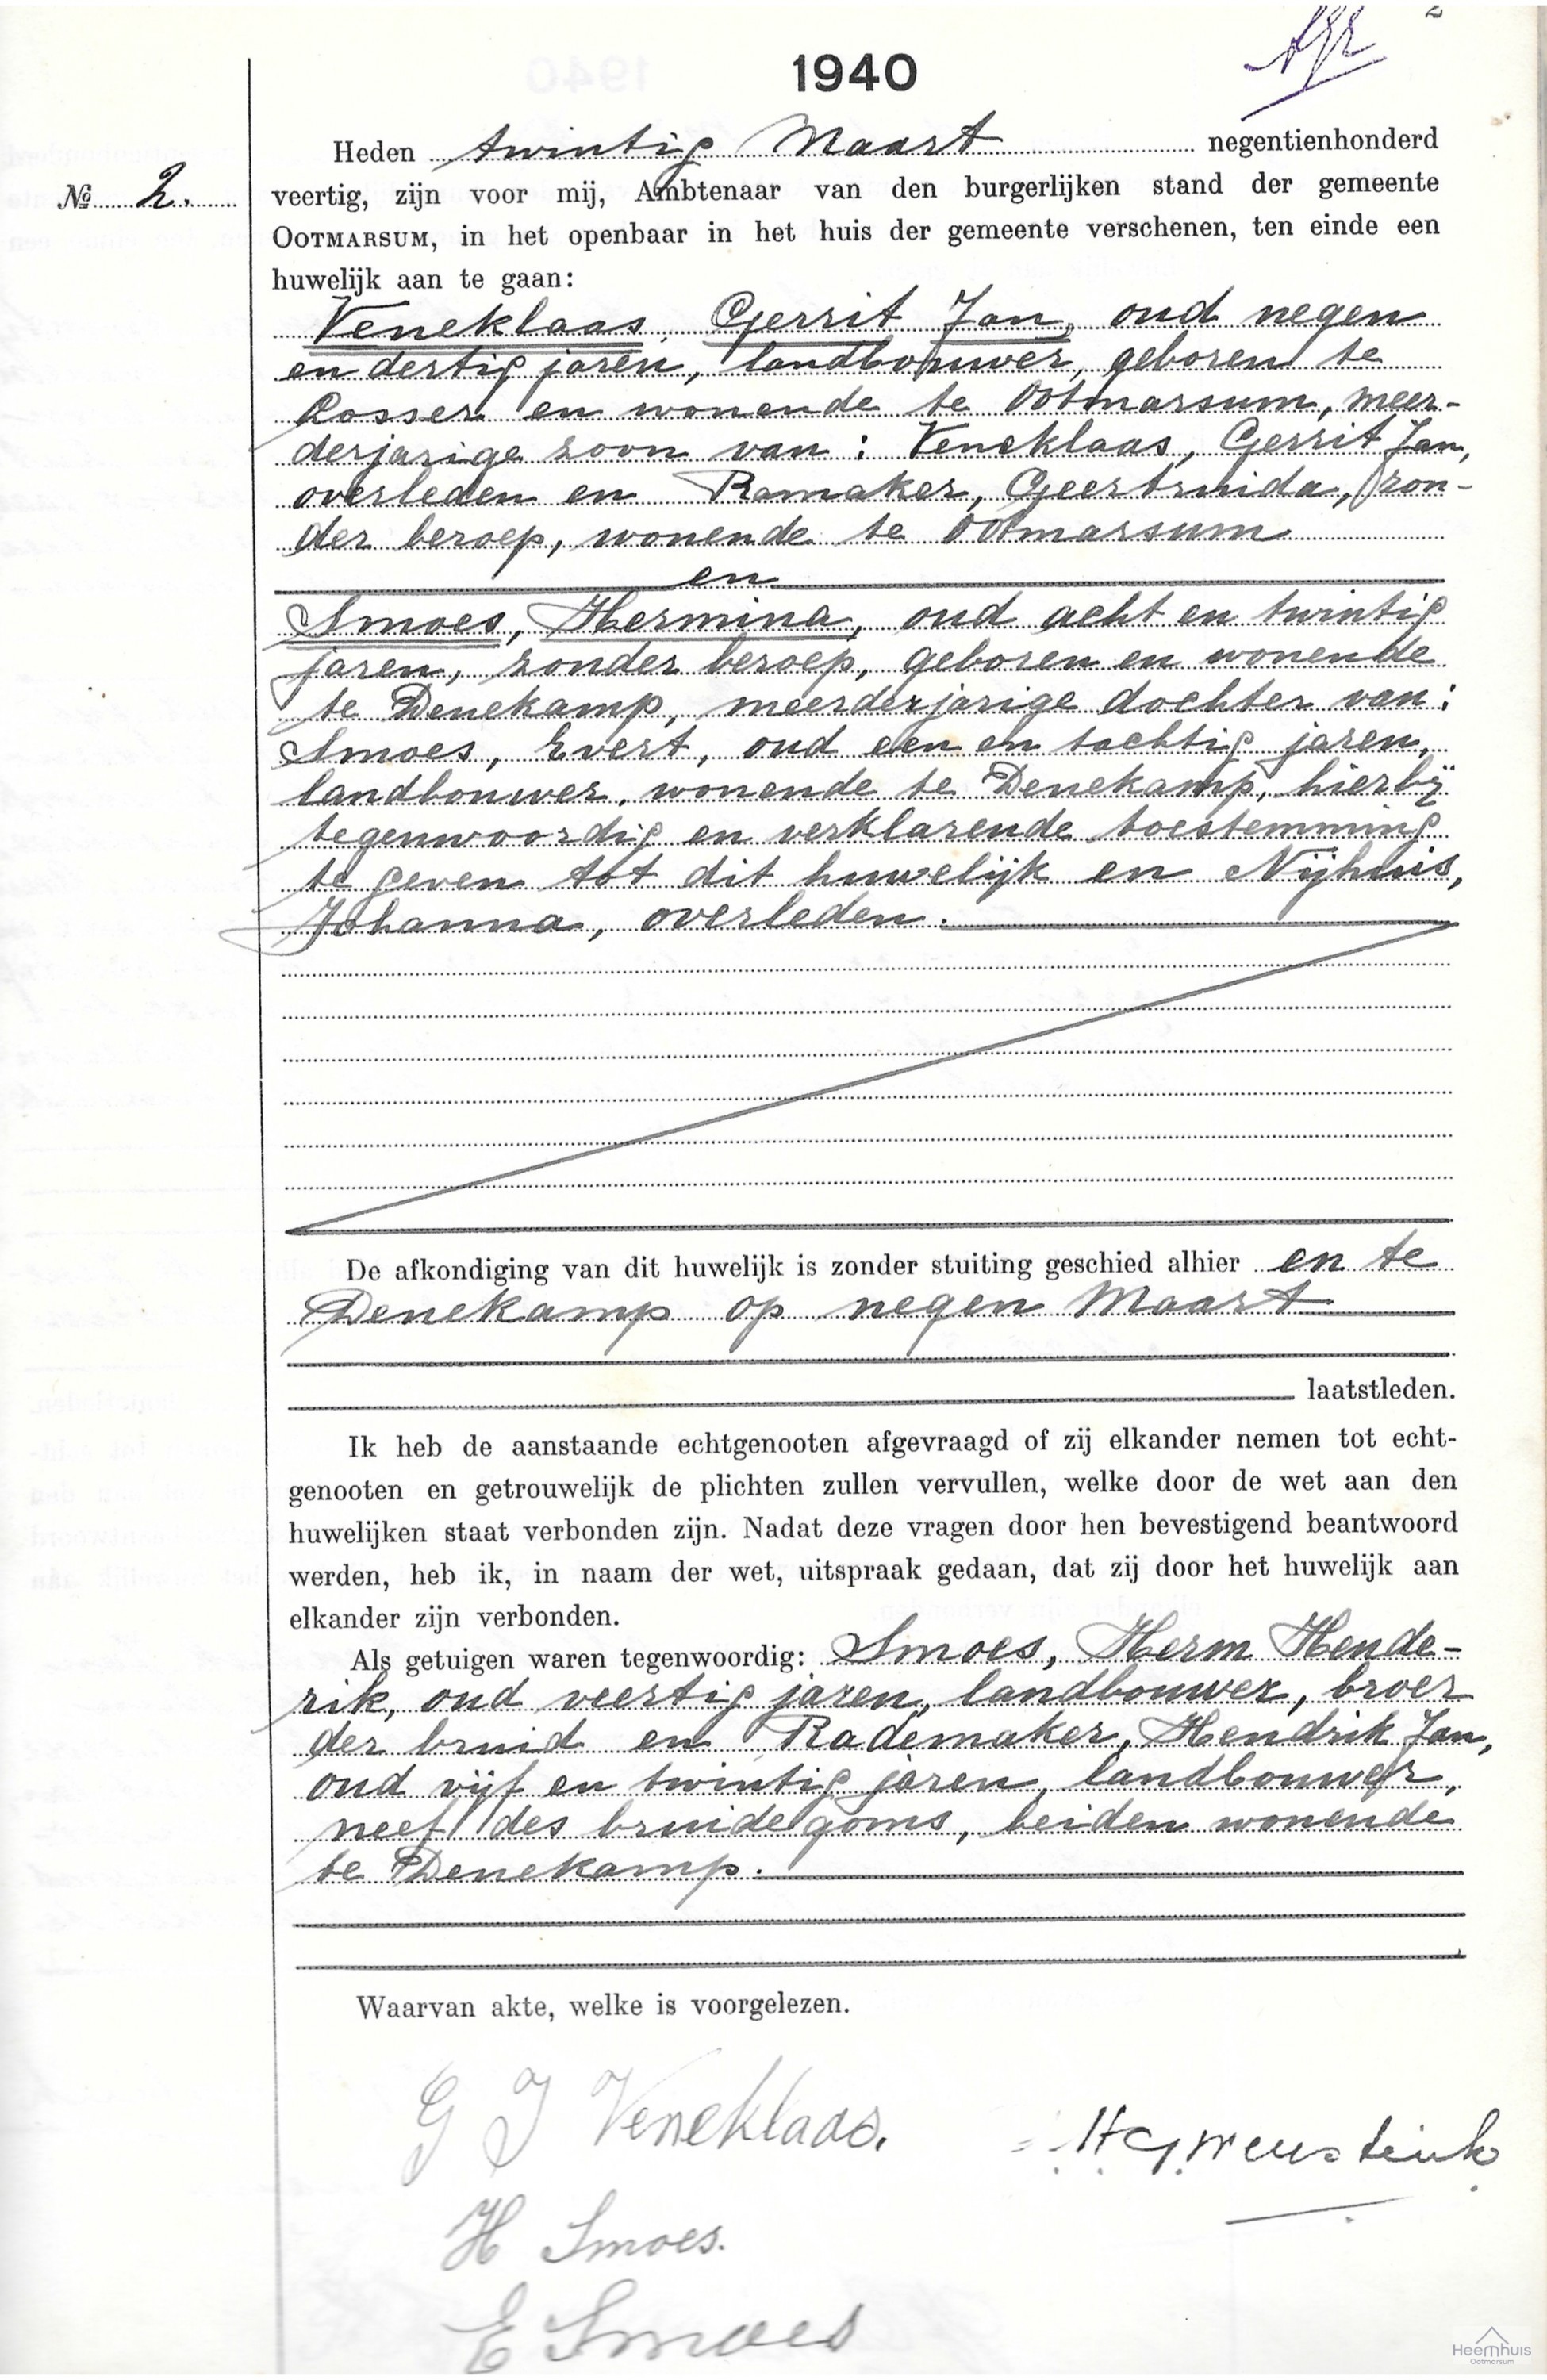 2
1940
Heden twintig Maart negentienhonderd
№ 2.
veertig, zijn voor mij, Ambtenaar van den burgerlijken stand der gemeente
OOTMARSUM, in het openbaar in het huis der gemeente verschenen, ten einde een
huwelijk aan te gaan:
Veneklaas, Gerrit Jan, oud negen
en dertig jaren, landbouwer, geboren te
Losser en wonende te Ootmarsum, meer-
derjarige zoon van: Veneklaas, Gerrit Jan,
overleden en Ramaker, Geertruida, zon-
der beroep, wonende te Ootmarsum
en
Smoes, Hermina, oud acht en twintig
jaren, zonder beroep, geboren en wonende
te Denekamp, meerderjarige dochter van:
Smoes, Evert, oud een en tachtig jaren,
landbouwer, wonende te Denekamp, hierbij
tegenwoordig en verklarende toestemming
te geven tot dit huwelijk en Nijhuis,
Johanna, overleden.
De afkondiging van dit huwelijk is zonder stuiting geschied alhier en te
Denekamp op negen Maart
laatstleden.
Ik heb de aanstaande echtgenooten afgevraagd of zij elkander nemen tot echt-
genooten en getrouwelijk de plichten zullen vervullen, welke door de wet aan den
huwelijken staat verbonden zijn. Nadat deze vragen door hen bevestigend beantwoord
werden, heb ik, in naam der wet, uitspraak gedaan, dat zij door het huwelijk aan
elkander zijn verbonden.
Als getuigen waren tegenwoordig: Smoes, Herm Hende-
rik, oud veertig jaren, landbouwer, broer
der bruid en Rademaker, Hendrik Jan,
oud vijf en twintig jaren, landbouwer,
neef des bruidegoms, beiden wonende
te Denekamp.
Waarvan akte, welke is voorgelezen.
G J Veneklaas.
H Smoes.
E Smoes
Heemhuis
Ootmarsum